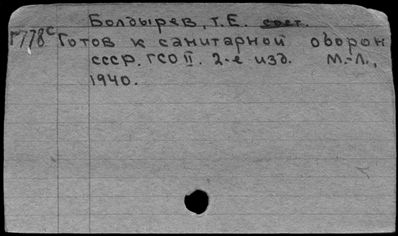 Болдырев, Т.Е. сост.
Г778с Готов к санитарной оборон
СССР. ГСО II. 2-е изд. М.-Л.,
1940.